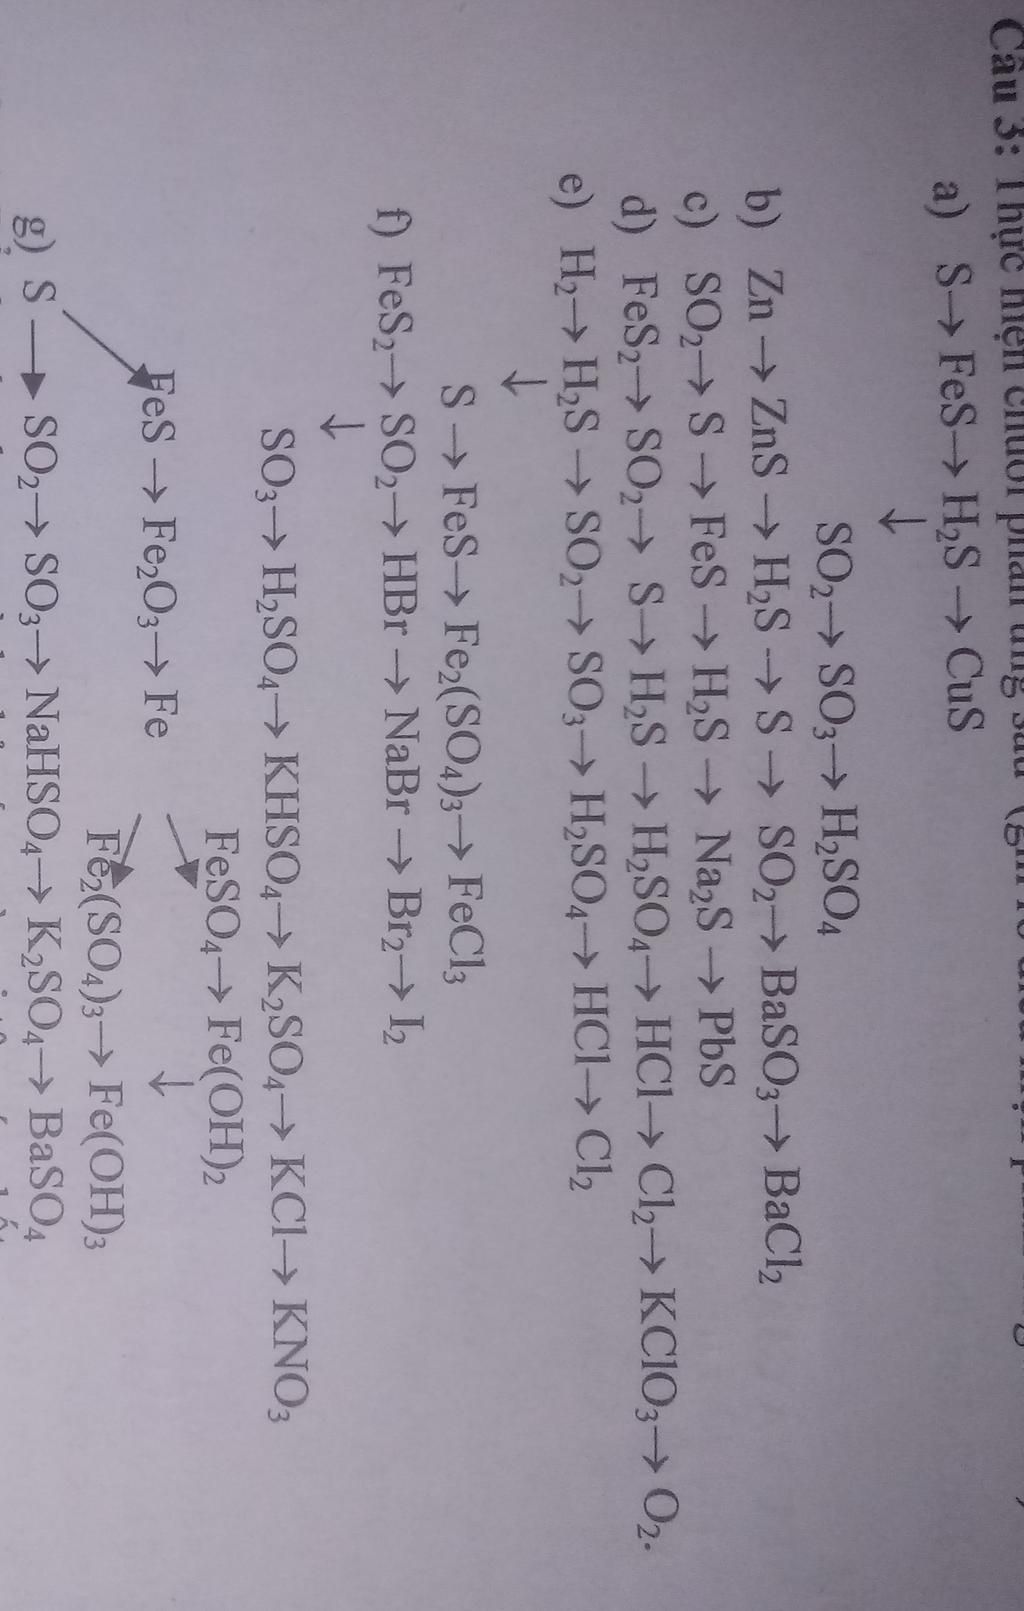 Câu 3: Thực hiện chuỗi phản ứng sau (ghi rõ điều kiện
a) S→ FeS→ H₂S → CuS
↓
SO₂→ SO₃→ H₂SO₄
b) Zn → ZnS → H₂S → S → SO₂→ BaSO₃→ BaCl₂
c) SO₂→ S → FeS → H₂S → Na₂S → PbS
d) FeS₂→ SO₂→ S→ H₂S → H₂SO₄→ HCl→ Cl₂→ KClO₃→ O₂.
e) H₂→ H₂S → SO₂→ SO₃→ H₂SO₄→ HCl→ Cl₂
↓
S → FeS→ Fe₂(SO₄)₃→ FeCl₃
f) FeS₂→ SO₂→ HBr → NaBr → Br₂→ I₂
↓
SO₃→ H₂SO₄→ KHSO₄→ K₂SO₄→ KCl→ KNO₃
FeSO₄→ Fe(OH)₂
FeS → Fe₂O₃→ Fe ↓
Fe₂(SO₄)₃→ Fe(OH)₃
g) S → SO₂→ SO₃→ NaHSO₄→ K₂SO₄→ BaSO₄